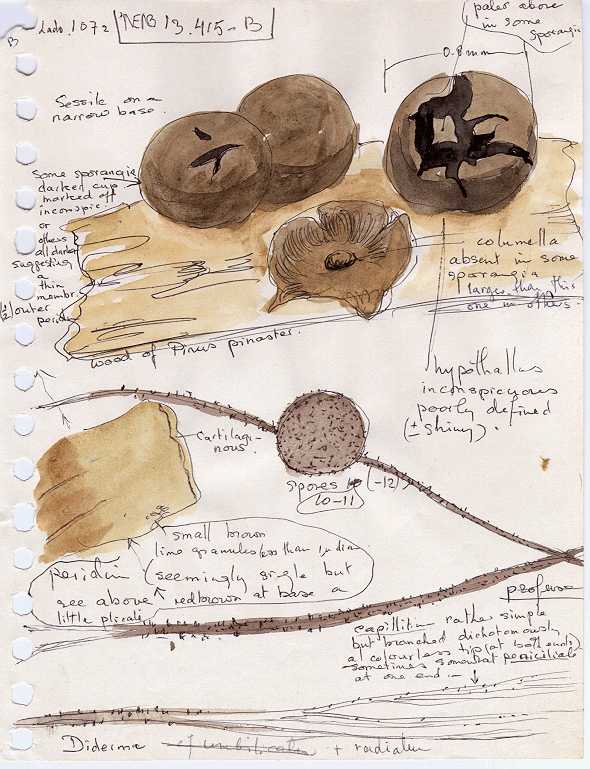 Lado. 1072
13.415-B
B
paler above
in some
sporangia
0.8mm
Sessile on a
narrow base.
Some sporangia
darked cup
marked off
inconspic.
or
others
all darker
suggesting
a
thin
membr.
outer
peridi
columella
absent in some
sporangia
larger than this
one in others.
wood of Pinus pinaster.
hypothallus
inconspicuous
poorly defined
(± shiny).
Cartilagi-
nous.
spores (-12)
10-11
small brown
lime granules less than 1µ dia.
peridium (seemingly single but
see above redbrown at base a
little plicate
profuse
capillitium rather simple
but branched dichotomously
a colourless tip (at both ends)
sometimes somewhat penicillate
at one end
Diderma cf umbilicatum + radiatum